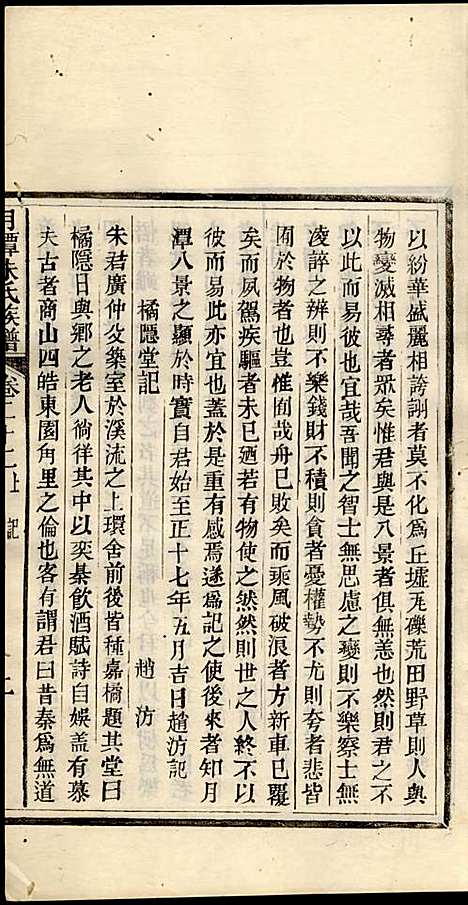 以紛華盛麗相誇詡者莫不化為丘墟瓦礫荒田野草則人與
物變滅相尋者眾矣惟君與是八景者俱無恙也然則君之不
以此而易彼也宜哉吾聞之智士無思慮之變則不樂察士無
凌誶之辨則不樂錢財不積則貪者憂權勢不尤則夸者悲皆
囿於物者也豈惟囿哉舟已敗矣而乘風破浪者方新車已覆
矣而夙駕疾驅者未已廼若有物使之然然則世之人終不以
彼而易此亦宜也蓋於是重有感焉遂為記之使後來者知月
潭八景之顯於時實自君始至正十七年五月吉日趙汸記
橘隱堂記
趙汸
朱君廣仲父築室於溪流之上環舍前後皆種嘉橘題其堂曰
橘隱日與鄉之老人徜徉其中以奕棊飲酒賦詩自娛蓋有慕
夫古者商山四皓東園角里之倫也客有謂君曰昔秦為無道
月潭朱氏族譜 卷二十二上 記